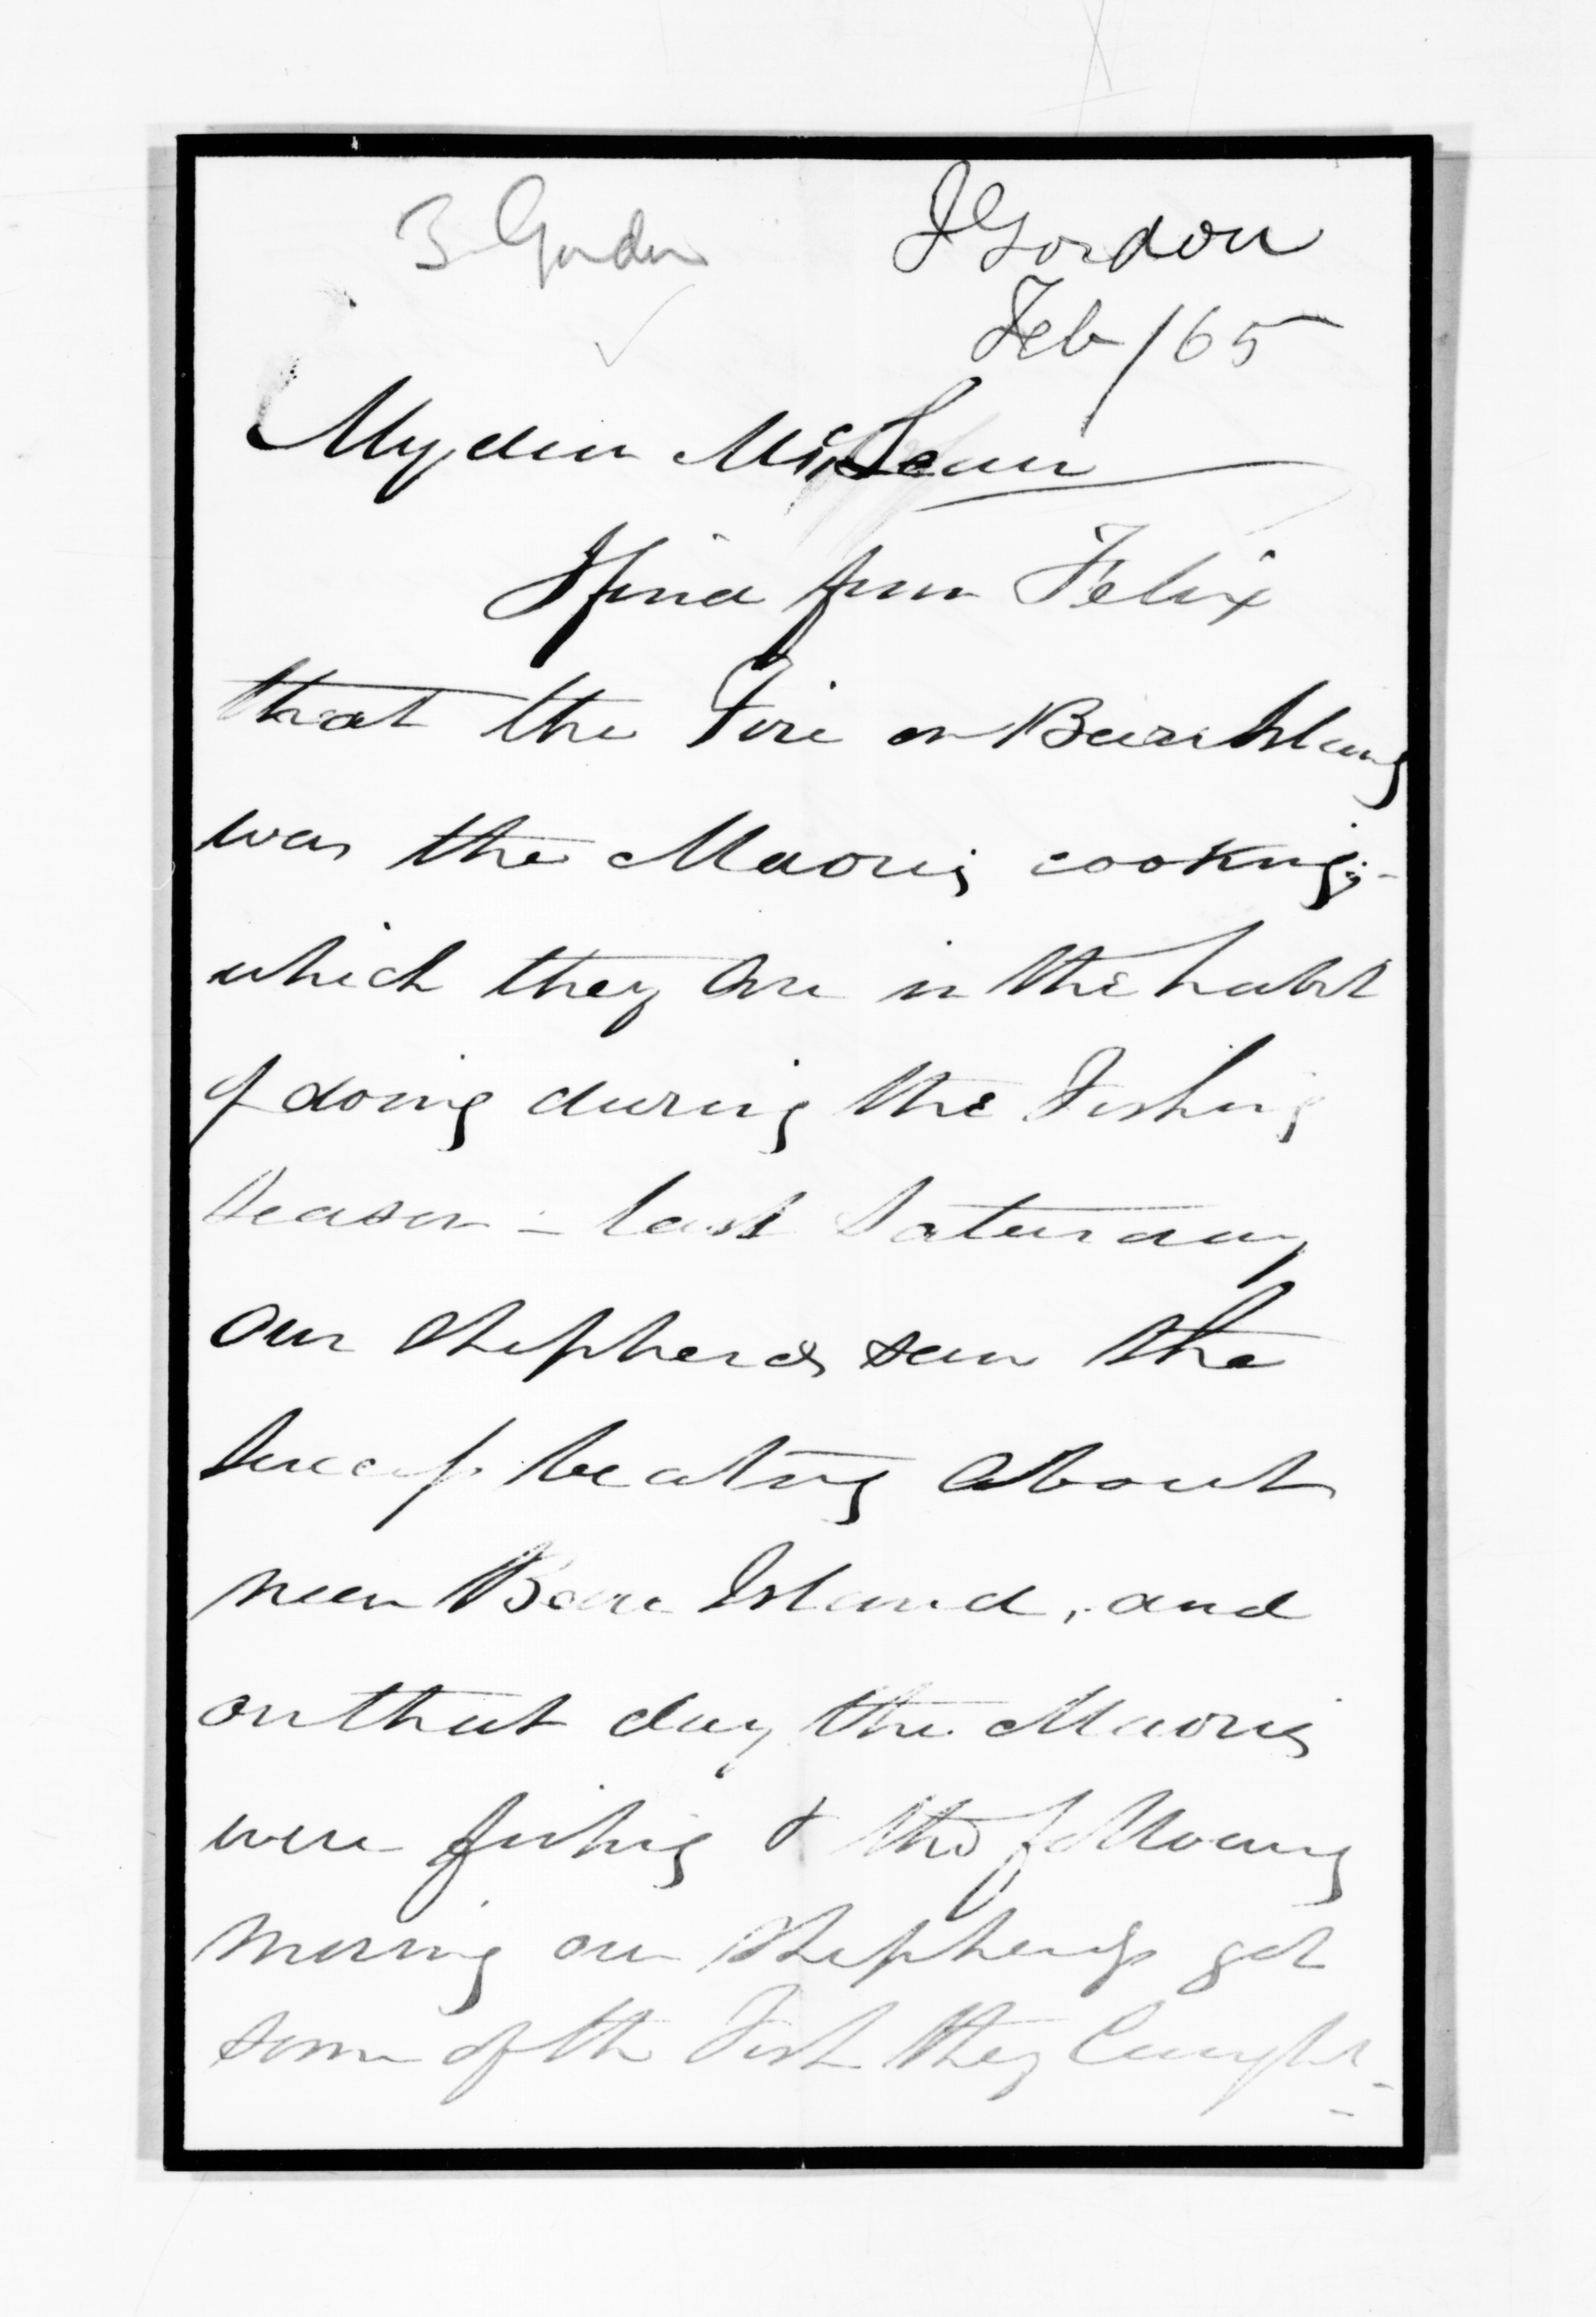 3 Gordon
J Gordon
Feb/65
My dear McLean
I find from Felix
that the Fire on Bare Island
was the Maoris cooking;-
which they are in the habit
of doing during the Fishing
season - last Saturday
our Shepherds saw the
beating about
near Bare Island, and
on that day the Maoris
were fishing & the following
morning our Shepherds got
some of the Fish they Caught -